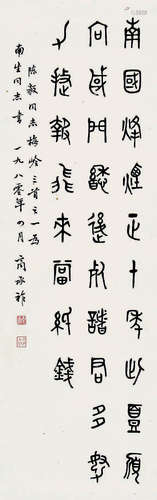 南國烽煙正十年此頭須
向國門懸後死諸君多努
力捷報飛來當紙錢
陳毅同志梅嶺三首之一為
南生同志書 一九八零年四月 商承祚